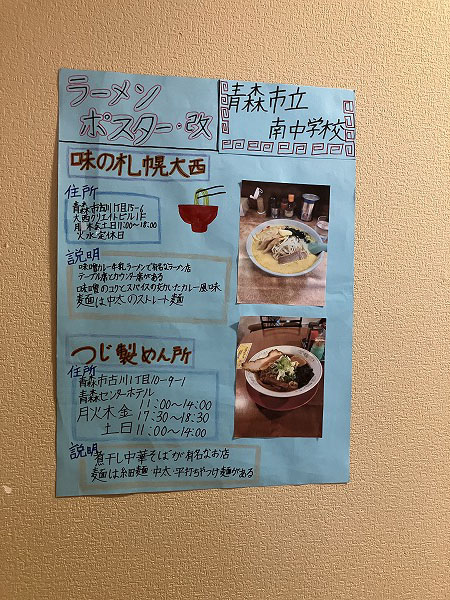 ラーメン
ポスター・改
青森市立
南中学校
味の札幌大西
住所
青森市古川1丁目15-6
大西クリエイトビル1F
月木金土日11:00~18:00
火水定休日
説明
味噌カレー牛乳ラーメンで有名なラーメン店
テーブル席とカウンター席がある
味噌のコクとスパイスの効いたカレー風味
麺は中太のストレート麺
つじ製めん所
住所
青森市古川1丁目10-9-1
青森センターホテル
月火木金 11:00~14:00
17:30~18:30
土日11:00~14:00
説明
煮干し中華そばが有名なお店
麺は細麺・中太・平打ちやつけ麺がある